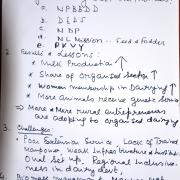 c. NPBBDD
b. DEDS
c. NDP
d. NL Mission - Feed & Fodder
e. PKVY
2. Results & Lessons:
* Milk Production ↑
* Share of organised sector ↑
* Women membership in Dairying ↑
* More Animals receive genetic
⇒ More & More rural entrepreneurs are adopting to organised dairying
3. Challenges:
* Poor Extension Serv Lack of Trained
Manpower Weak Infrastructure
Oval set up, Regional Inclusive-
ness in dairy devt,
4.